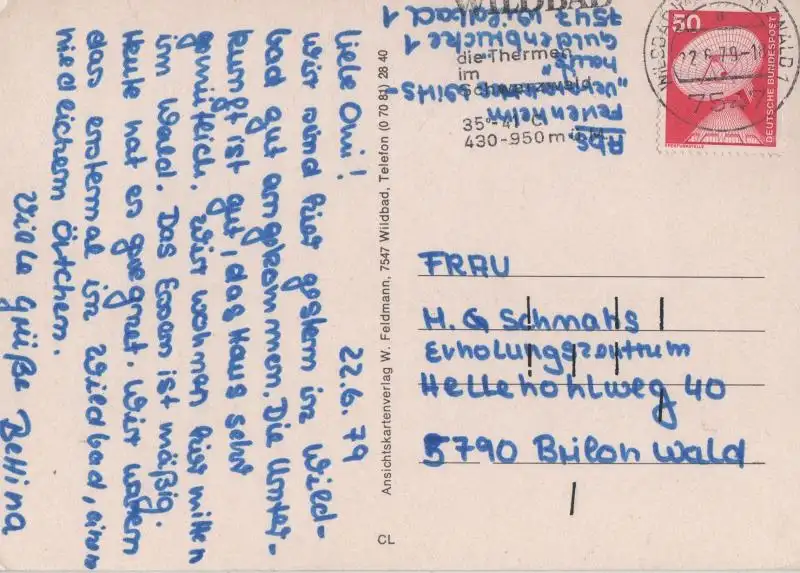 22.6.79
Liebe Omi!
Wir sind hier gestern in Wild-
bad gut angekommen. Die Unter-
kunft ist gut, das Haus sehr
gemütlich. Wir wohnen hier mitten
im Wald. Das Essen ist mäßig.
Heute hat es geregnet. Wir waren
das erstemal in Wildbad, einem
niedlichem Örtchen.
Viele Grüße Bettina
Ansichtskartenverlag W. Feldmann, 7547 Wildbad, Telefon (0 70 81) 28 40
CL
Abs
Ferienheim
haus"
Guldenbrücke 1
7547 Wildbad 1
WILDBAD
die Thermen
im
Schwarzwald
35°-41°C
430-950 m ü M
7547
50
DEUTSCHE BUNDESPOST
ERDFUNKSTELLE
FRAU
H. G Schmahs
Erholungszentrum
Hellehohlweg 40
5790 Brilon Wald